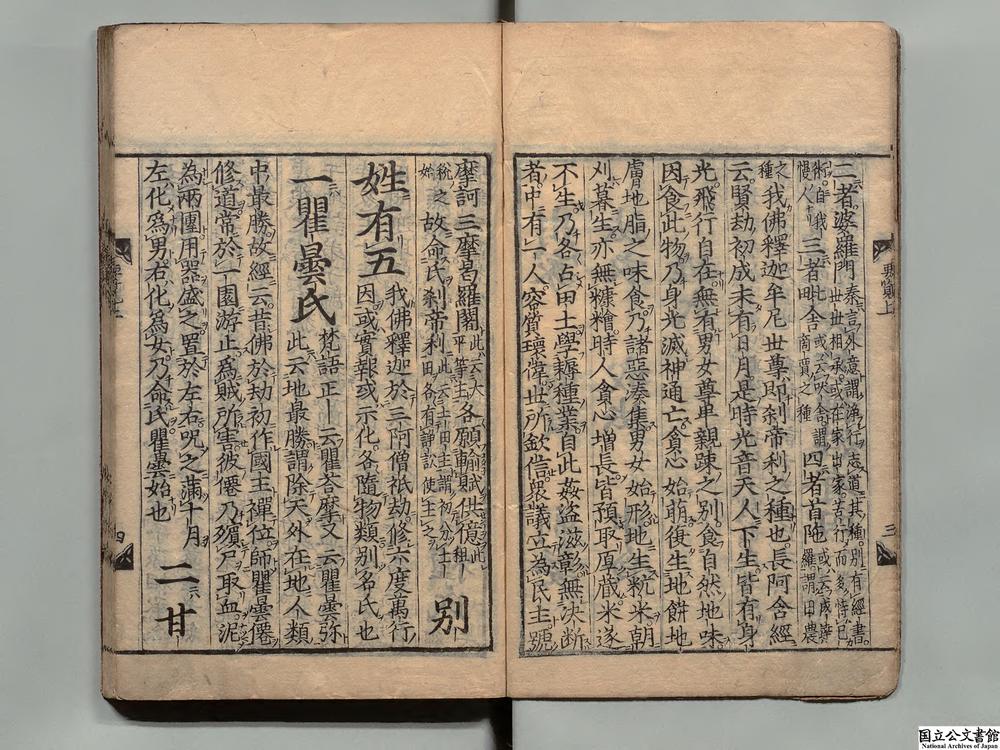 二者婆羅門秦言外意謂淨行志道其種別有經書
世世相承或在家出家苦行而多恃己
術自我慢人三者毗舍或云吠舍謂商賈之種四者首陁或云戍達羅謂田農
之種我佛釋迦牟尼世尊即刹帝利之種也長阿含經
云賢劫初成未有日月是時光音天人下生皆有身
光飛行自在無有男女尊卑親疎之別食自然地味
因食此物乃身光滅神通亡貪心始萌後生地餅地
膚地脂之味食乃諸惡湊集男女始形地生粇米朝
刈暮生亦無糠糩時人貪心增長皆預取厚藏米遂
不生乃各占田土學耨種業自此姦盜滋彰無决斷
者中有一人容質瓌偉世所欽信衆議立為民主號
要覽上
三
摩訶三摩曷羅闍此云大平等王各願輸賦供億此租
稅之始故命氏刹帝利此云土田主謂初分土田各有諍訟使主之
別
姓有五我佛釋迦於三阿僧祇劫修六度萬行
因或實報或示化各隨物類別名氏也
一瞿曇氏梵語正云瞿荅摩又云瞿曇弥
此云地最勝謂除天外在地人類
中最勝故經云昔佛於劫初作國王禪位師瞿曇僊
修道常於一園游止為賊所害彼僊乃殯尸取血泥
為兩團用器盛之置於左右呪之滿十月
左化為男右化為女乃命氏瞿曇始也
二甘
四
国立公文書館
National Archives of Japan